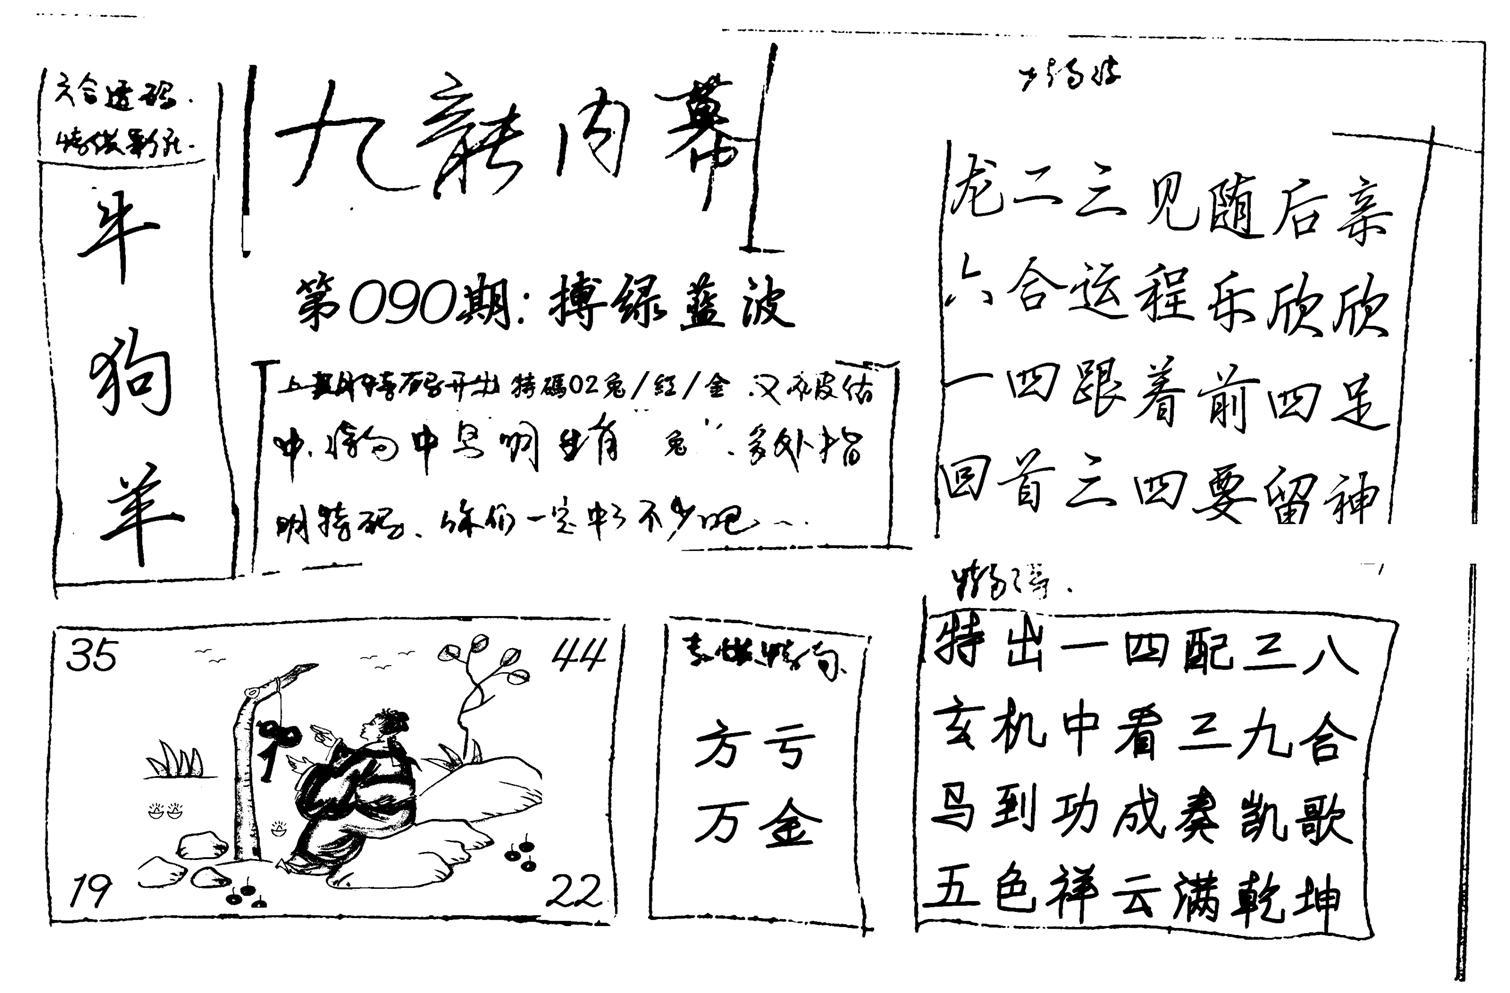 六合透码.
牛
狗
羊
九龍内幕
第090期:搏绿蓝波
特码开出 特碼02兔/红/金
中 中 明 生肖"兔".多处指
明特码、你们一定中了不少吧
龙二三见随后亲
六合运程乐欣欣
一四跟着前四足
回首三四要留神
35 44
19 22
方亏
万金
特出一四配三八
玄机中看三九合
马到功成奏凯歌
五色祥云满乾坤